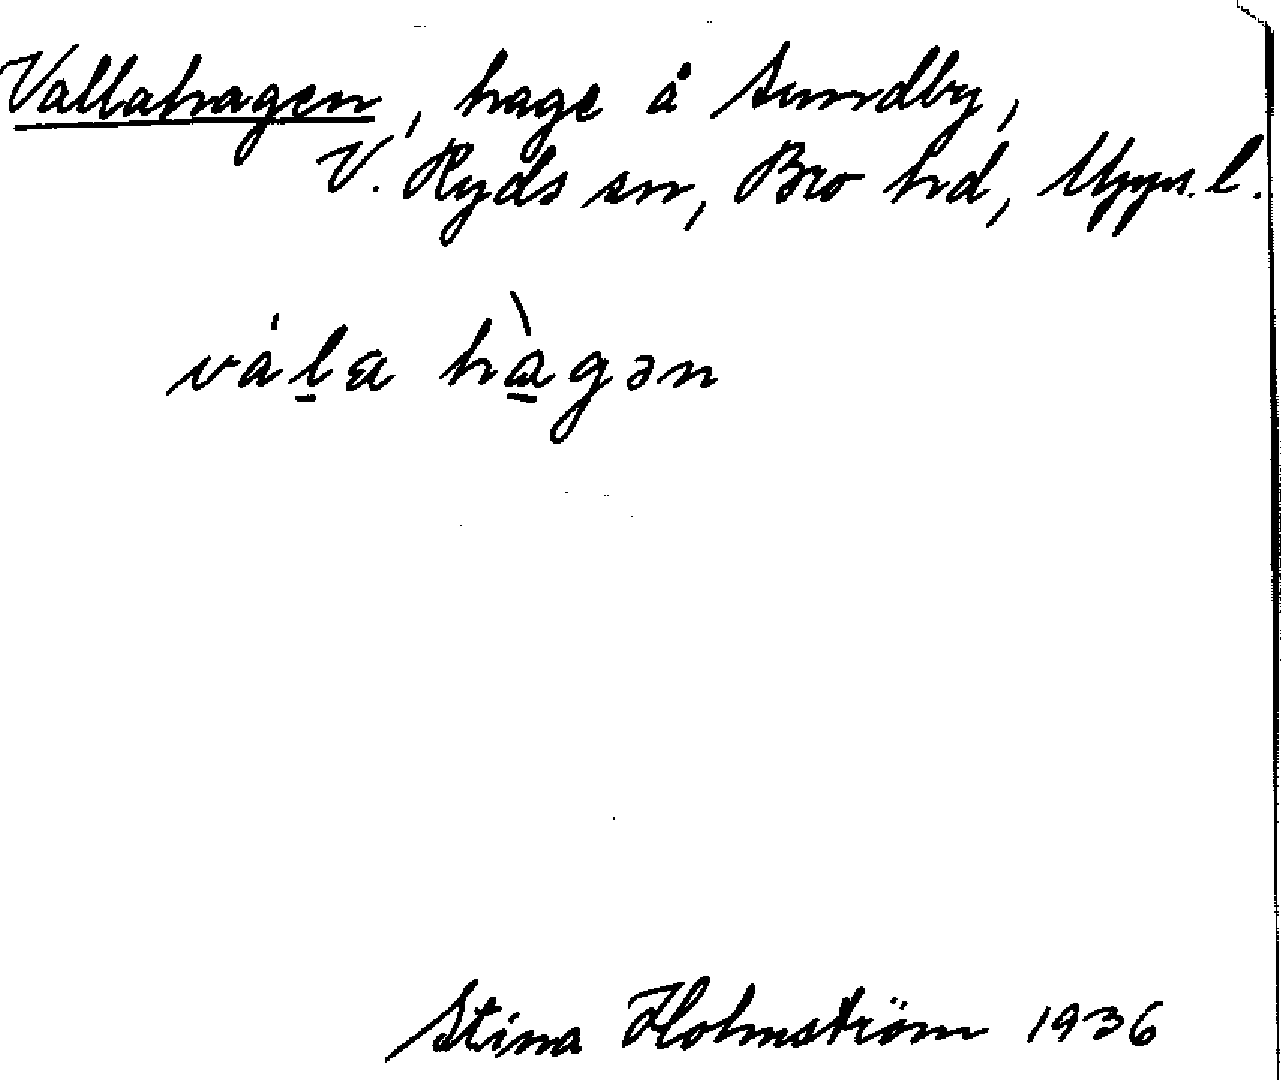 Vallahagen, hage å Sundby,
V. Ryds sn, Bro hd, Upps. l.
vál̲a hà̲gən
Stina Holmström 1936